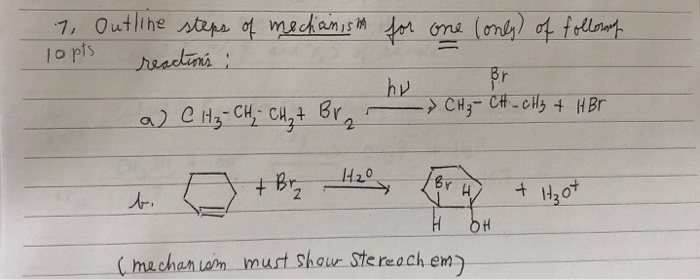 7, Outline steps of mechanism for one (only) of following
10 pts
reactions :
hν
Br
a) CH3-CH2-CH3 + Br2 → CH3-CH-CH3 + HBr
H2O
b. + Br2 → Br H + H3O+
H OH
(mechanism must show stereochem)